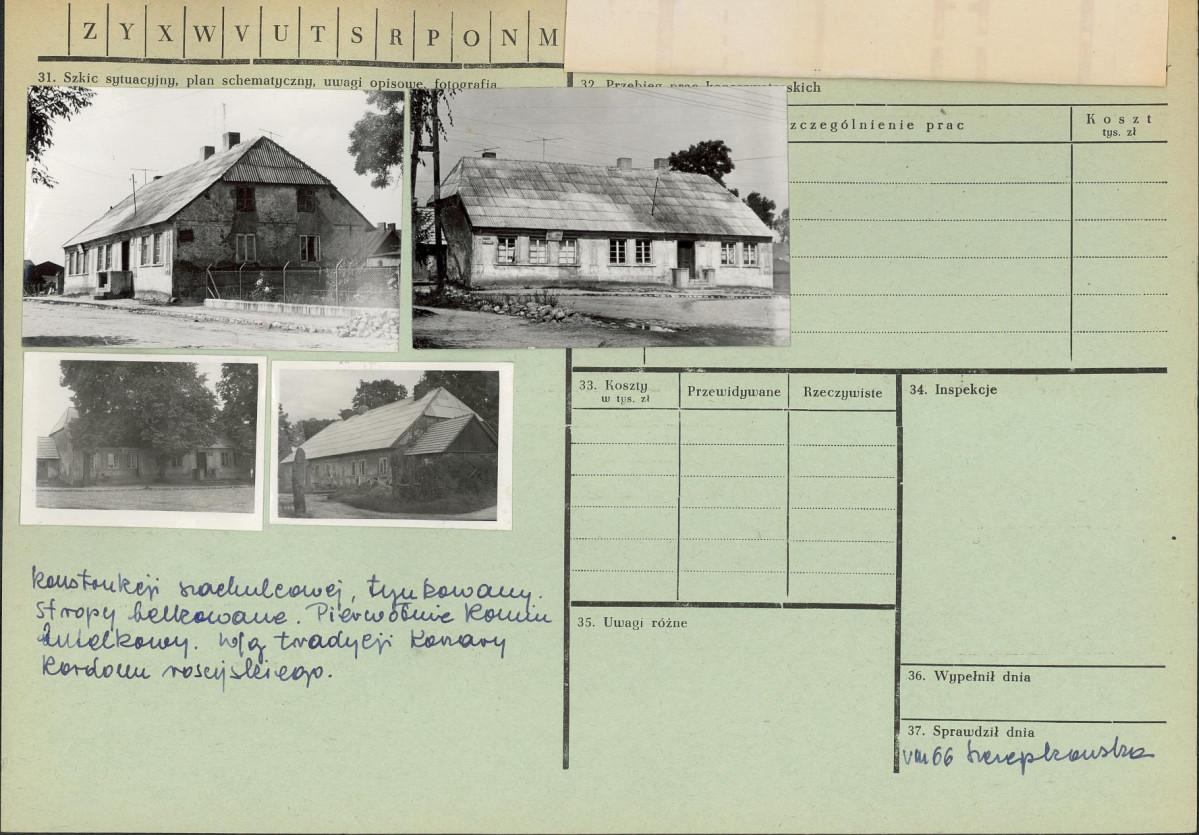 Z Y X W V U T S R P O N M
31. Szkic sytuacyjny, plan schematyczny, uwagi opisowe, fotografia
32. Przebieg prac
zczególnienie prac
Koszt
tys. zł
33. Koszty
w tys. zł
Przewidywane
Rzeczywiste
34. Inspekcje
konstrukcji szachulcowej, tynkowany.
Stropy belkowane. Pierwotnie komin
W/g tradycji Koszary
Kordonu rosyjskiego.
35. Uwagi różne
36. Wypełnił dnia
37. Sprawdził dnia
VIII 66 Szczepkowska